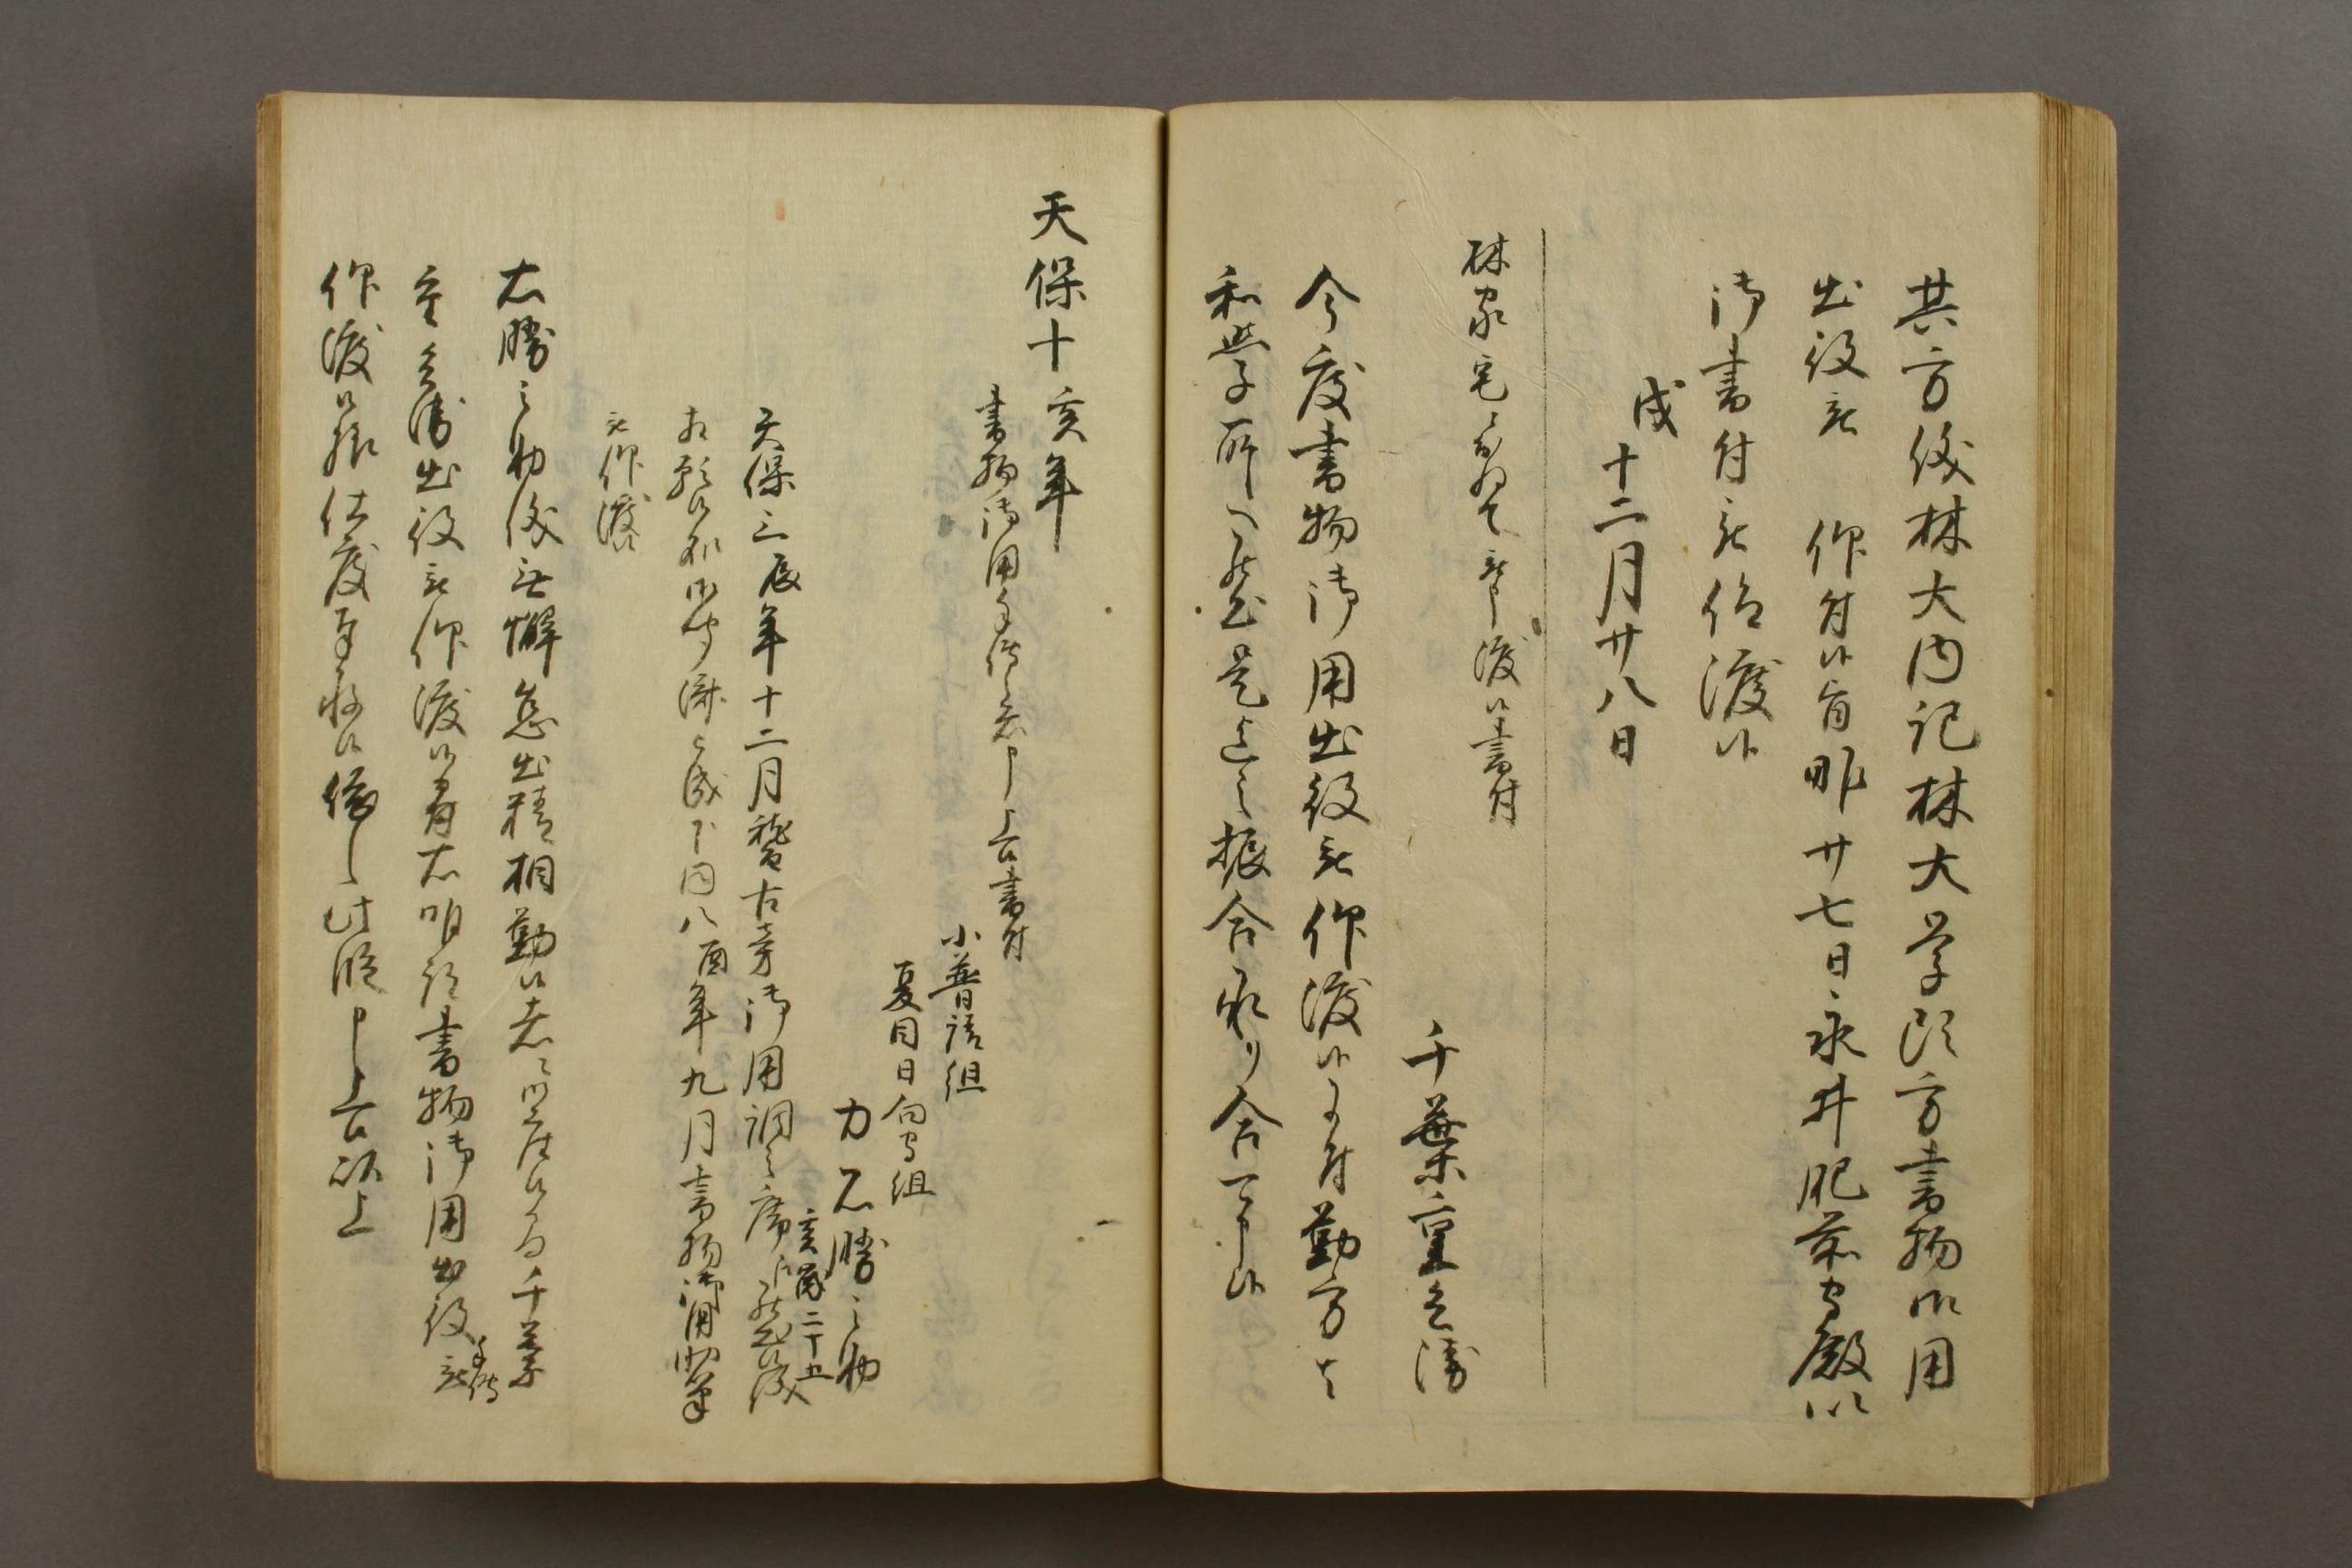 其方儀林大内記林大学頭方書物御用
出役被 仰付候旨昨廿七日永井肥前守殿以
御書付被仰渡候
戌
十二月廿八日
林家宅ニおゐて被申渡候書付
千葉重兵衛
今度書物御用出役被仰渡候ニ付勤方之
和学所へ罷出是迄之振合承り合可申候
天保十亥年
書物御用手伝之者申上候書付
小普請組
夏目日向守組
力石勝之助
亥歳二十五
天保三辰年十二月稽古旁御用調之席江罷出度
相願候処御聞済ニ成下同八酉年九月書物御用出筆
被仰渡候
右勝之助儀無懈怠出精相勤候者ニ御座候間千葉
重兵衛出役被仰渡候節右明跡書物御用出役手伝被
仰渡候様仕度奉存候依之此段申上候以上